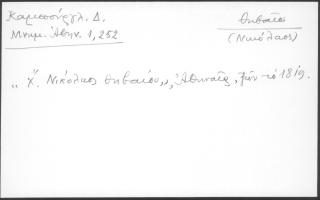 Καμπούρογλ. Δ.
Μνημ. Ἀθην. 1, 252
Θηβαῖος
(Νικόλαος)
„ Χ". Νικόλαος Θηβαίου „, Ἀθηναῖος, ζῶν τὸ 1819.